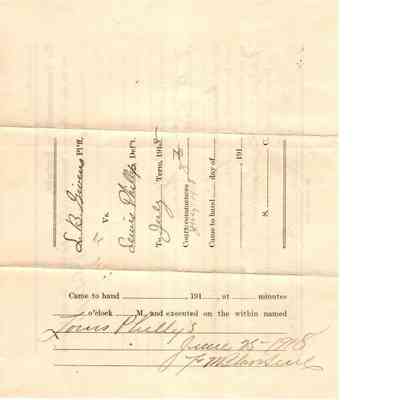 L. B. Givens Pltff.
Vs.
Lewis Phillips Def't.
To July Term, 1918
Court
Came to hand day of
191
S. C.
Came to hand , 191 at minutes
o'clock M., and executed on the within named
Louis Phillips
June 25 - 1918